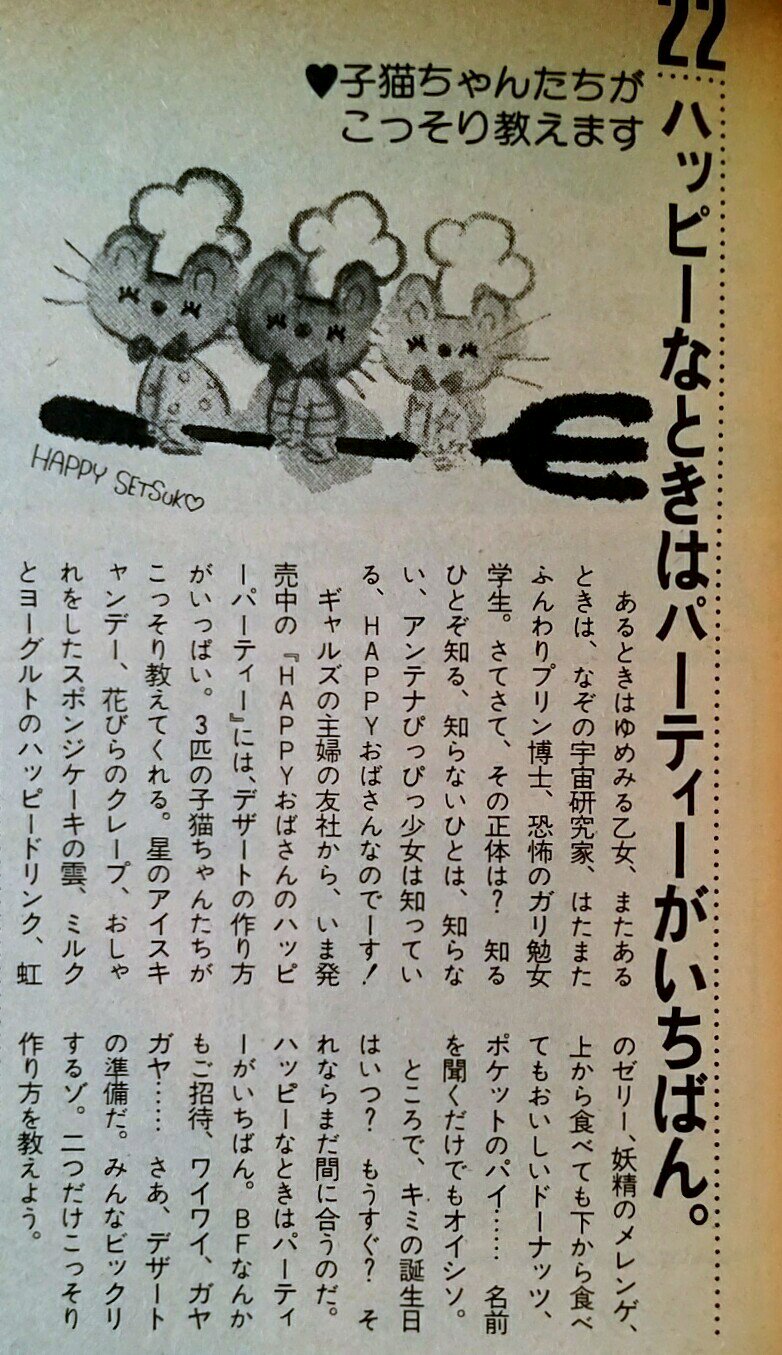 22
ハッピーなときはパーティーがいちばん。
♥子猫ちゃんたちが
こっそり教えます
HAPPY SETSUKO♡
あるときはゆめみる乙女、またある
ときは、なぞの宇宙研究家、はたまた
ふんわりプリン博士、恐怖のガリ勉女
学生。さてさて、その正体は? 知る
ひとぞ知る、知らないひとは、知らな
い、アンテナぴっぴっ少女は知ってい
る、HAPPYおばさんなのでーす!
ギャルズの主婦の友社から、いま発
売中の『HAPPYおばさんのハッピ
ーパーティー』には、デザートの作り方
がいっぱい。3匹の子猫ちゃんたちが
こっそり教えてくれる。星のアイスキ
ャンデー、花びらのクレープ、おしゃ
れをしたスポンジケーキの雲、ミルク
とヨーグルトのハッピードリンク、虹
のゼリー、妖精のメレンゲ、
上から食べても下から食べ
てもおいしいドーナッツ、
ポケットのパイ…… 名前
を聞くだけでもオイシソ。
ところで、キミの誕生日
はいつ? もうすぐ? そ
れならまだ間に合うのだ。
ハッピーなときはパーティ
ーがいちばん。BFなんか
もご招待、ワイワイ、ガヤ
ガヤ…… さあ、デザート
の準備だ。みんなビックリ
するゾ。二つだけこっそり
作り方を教えよう。